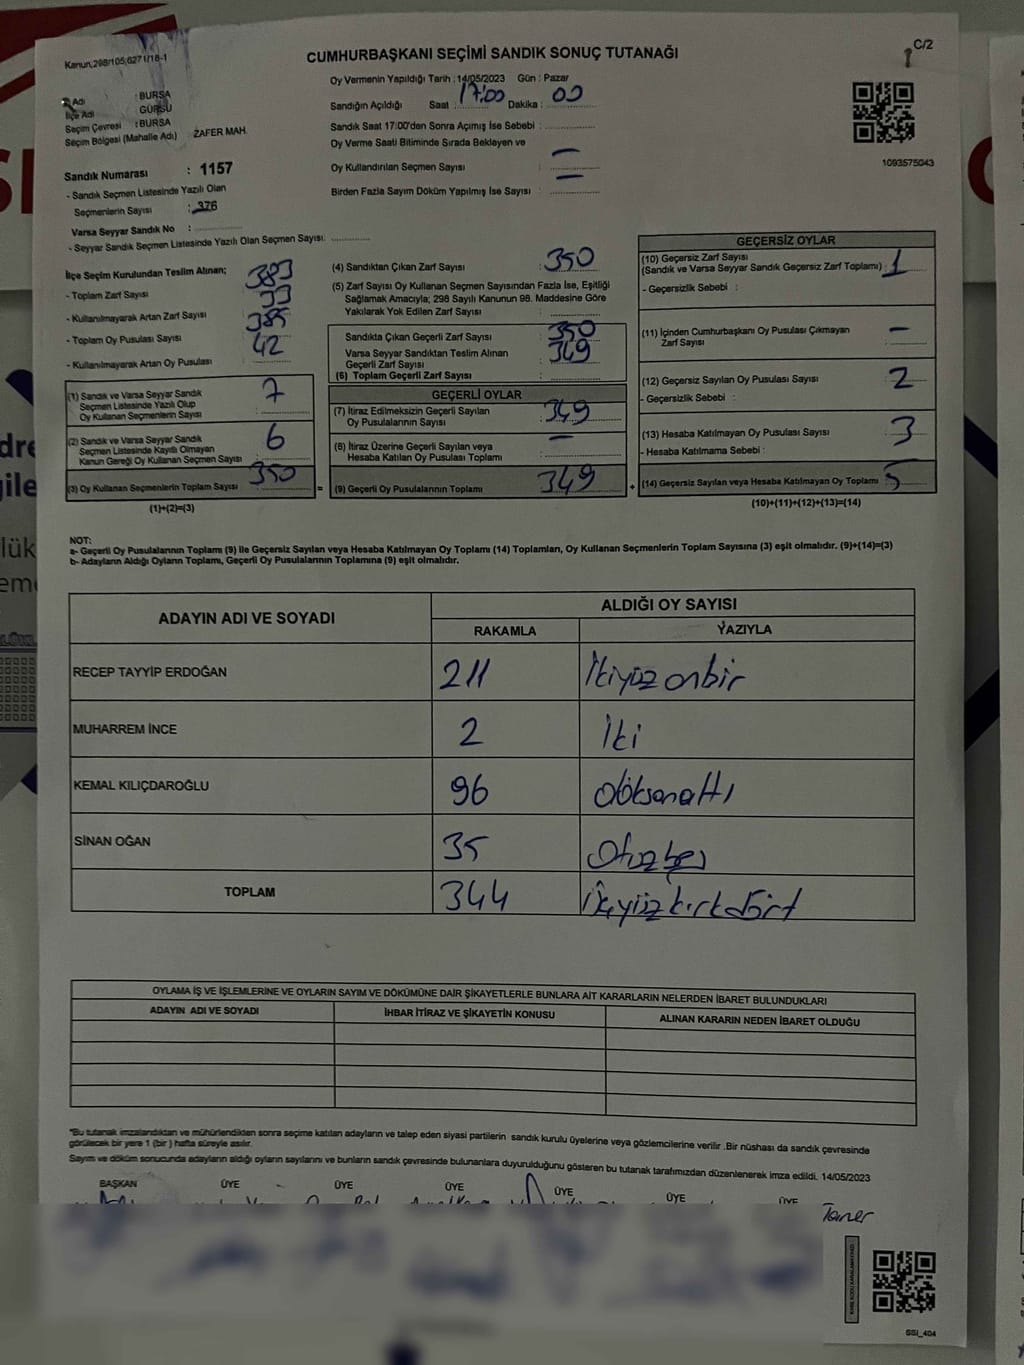 C/2
CUMHURBAŞKANI SEÇİMİ SANDIK SONUÇ TUTANAĞI
Kanun:298/105,6271/18-1
Oy Vermenin Yapıldığı Tarih :14/05/2023 Gün : Pazar
Sandığın Açıldığı Saat 17:00 Dakika : 00
Sandık Saat 17:00'den Sonra Açılmış İse Sebebi :
Oy Verme Saati Bitiminde Sırada Bekleyen ve
Oy Kullandırılan Seçmen Sayısı : —
Birden Fazla Sayım Döküm Yapılmış İse Sayısı : —
Adı : BURSA
İlçe Adı : GÜRSU
Seçim Çevresi : BURSA
Seçim Bölgesi (Mahalle Adı) : ZAFER MAH.
1093575043
Sandık Numarası : 1157
- Sandık Seçmen Listesinde Yazılı Olan
Seçmenlerin Sayısı : 376
Varsa Seyyar Sandık No :
- Seyyar Sandık Seçmen Listesinde Yazılı Olan Seçmen Sayısı:
İlçe Seçim Kurulundan Teslim Alınan;
- Toplam Zarf Sayısı 383
- Kullanılmayarak Artan Zarf Sayısı 33
- Toplam Oy Pusulası Sayısı 385
- Kullanılmayarak Artan Oy Pusulası 42
(1) Sandık ve Varsa Seyyar Sandık
Seçmen Listesinde Yazılı Olup
Oy Kullanan Seçmenlerin Sayısı : 7
(2) Sandık ve Varsa Seyyar Sandık
Seçmen Listesinde Kayıtlı Olmayan
Kanun Gereği Oy Kullanan Seçmen Sayısı 6
(3) Oy Kullanan Seçmenlerin Toplam Sayısı 350
(1)+(2)=(3)
(4) Sandıktan Çıkan Zarf Sayısı : 350
(5) Zarf Sayısı Oy Kullanan Seçmen Sayısından Fazla İse, Eşitliği
Sağlamak Amacıyla; 298 Sayılı Kanunun 98. Maddesine Göre
Yakılarak Yok Edilen Zarf Sayısı :
Sandıkta Çıkan Geçerli Zarf Sayısı : 350
Varsa Seyyar Sandıktan Teslim Alınan
Geçerli Zarf Sayısı : 349
(6) Toplam Geçerli Zarf Sayısı :
GEÇERLİ OYLAR
(7) İtiraz Edilmeksizin Geçerli Sayılan
Oy Pusulalarının Sayısı : 349
(8) İtiraz Üzerine Geçerli Sayılan veya
Hesaba Katılan Oy Pusulası Toplamı : —
= (9) Geçerli Oy Pusulalarının Toplamı : 349
GEÇERSİZ OYLAR
(10) Geçersiz Zarf Sayısı
(Sandık ve Varsa Seyyar Sandık Geçersiz Zarf Toplamı) : 1
- Geçersizlik Sebebi :
(11) İçinden Cumhurbaşkanı Oy Pusulası Çıkmayan
Zarf Sayısı : —
(12) Geçersiz Sayılan Oy Pusulası Sayısı : 2
- Geçersizlik Sebebi :
(13) Hesaba Katılmayan Oy Pusulası Sayısı : 3
- Hesaba Katılmama Sebebi :
+ (14) Geçersiz Sayılan veya Hesaba Katılmayan Oy Toplamı : 5
(10)+(11)+(12)+(13)=(14)
NOT:
a- Geçerli Oy Pusulalarının Toplamı (9) ile Geçersiz Sayılan veya Hesaba Katılmayan Oy Toplamı (14) Toplamları, Oy Kullanan Seçmenlerin Toplam Sayısına (3) eşit olmalıdır. (9)+(14)=(3)
b- Adayların Aldığı Oyların Toplamı, Geçerli Oy Pusulalarının Toplamına (9) eşit olmalıdır.
ADAYIN ADI VE SOYADI ALDIĞI OY SAYISI
RAKAMLA YAZIYLA
RECEP TAYYİP ERDOĞAN 211 İkiyüz onbir
MUHARREM İNCE 2 İki
KEMAL KILIÇDAROĞLU 96 doksanaltı
SİNAN OĞAN 35 Otuzbeş
TOPLAM 344 İkiyüzkırkdört
OYLAMA İŞ VE İŞLEMLERİNE VE OYLARIN SAYIM VE DÖKÜMÜNE DAİR ŞİKAYETLERLE BUNLARA AİT KARARLARIN NELERDEN İBARET BULUNDUKLARI
ADAYIN ADI VE SOYADI İHBAR İTİRAZ VE ŞİKAYETİN KONUSU ALINAN KARARIN NEDEN İBARET OLDUĞU
*Bu tutanak imzalandıktan ve mühürlendikten sonra seçime katılan adayların ve talep eden siyasi partilerin sandık kurulu üyelerine veya gözlemcilerine verilir .Bir nüshası da sandık çevresinde
görülecek bir yere 1 (bir ) hafta süreyle asılır.
Sayım ve döküm sonucunda adayların aldığı oyların sayılarını ve bunların sandık çevresinde bulunanlara duyurulduğunu gösteren bu tutanak tarafımızdan düzenlenerek imza edildi. 14/05/2023
BAŞKAN ÜYE ÜYE ÜYE ÜYE ÜYE ÜYE
Taner
SSI_404